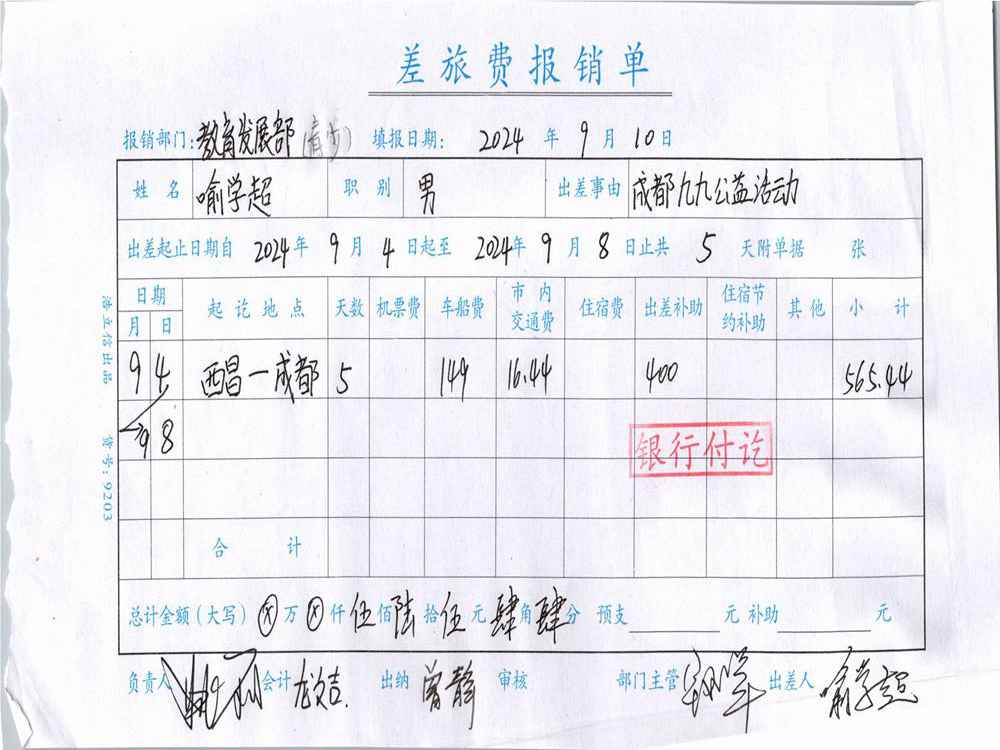 差旅费报销单
报销部门：教育发展部 填报日期： 2024 年 9 月 10 日
姓名 喻学超 职别 男 出差事由 成都九九公益活动
出差起止日期自 2024 年 9 月 4 日起至 2024 年 9 月 8 日止共 5 天附单据 张
日期 起讫地点 天数 机票费 车船费 市内交通费 住宿费 出差补助 住宿节约补助 其他 小计
月 日
9 4 西昌—成都 5 149 16.44 400 565.44
9 8
银行付讫
合计
总计金额（大写） ⊗ 万 ⊗ 仟 伍 佰 陆 拾 伍 元 肆 角 肆 分 预支 元 补助 元
负责人 会计 出纳 曾静 审核 部门主管 出差人 喻学超
浩立信出品 货号：9203